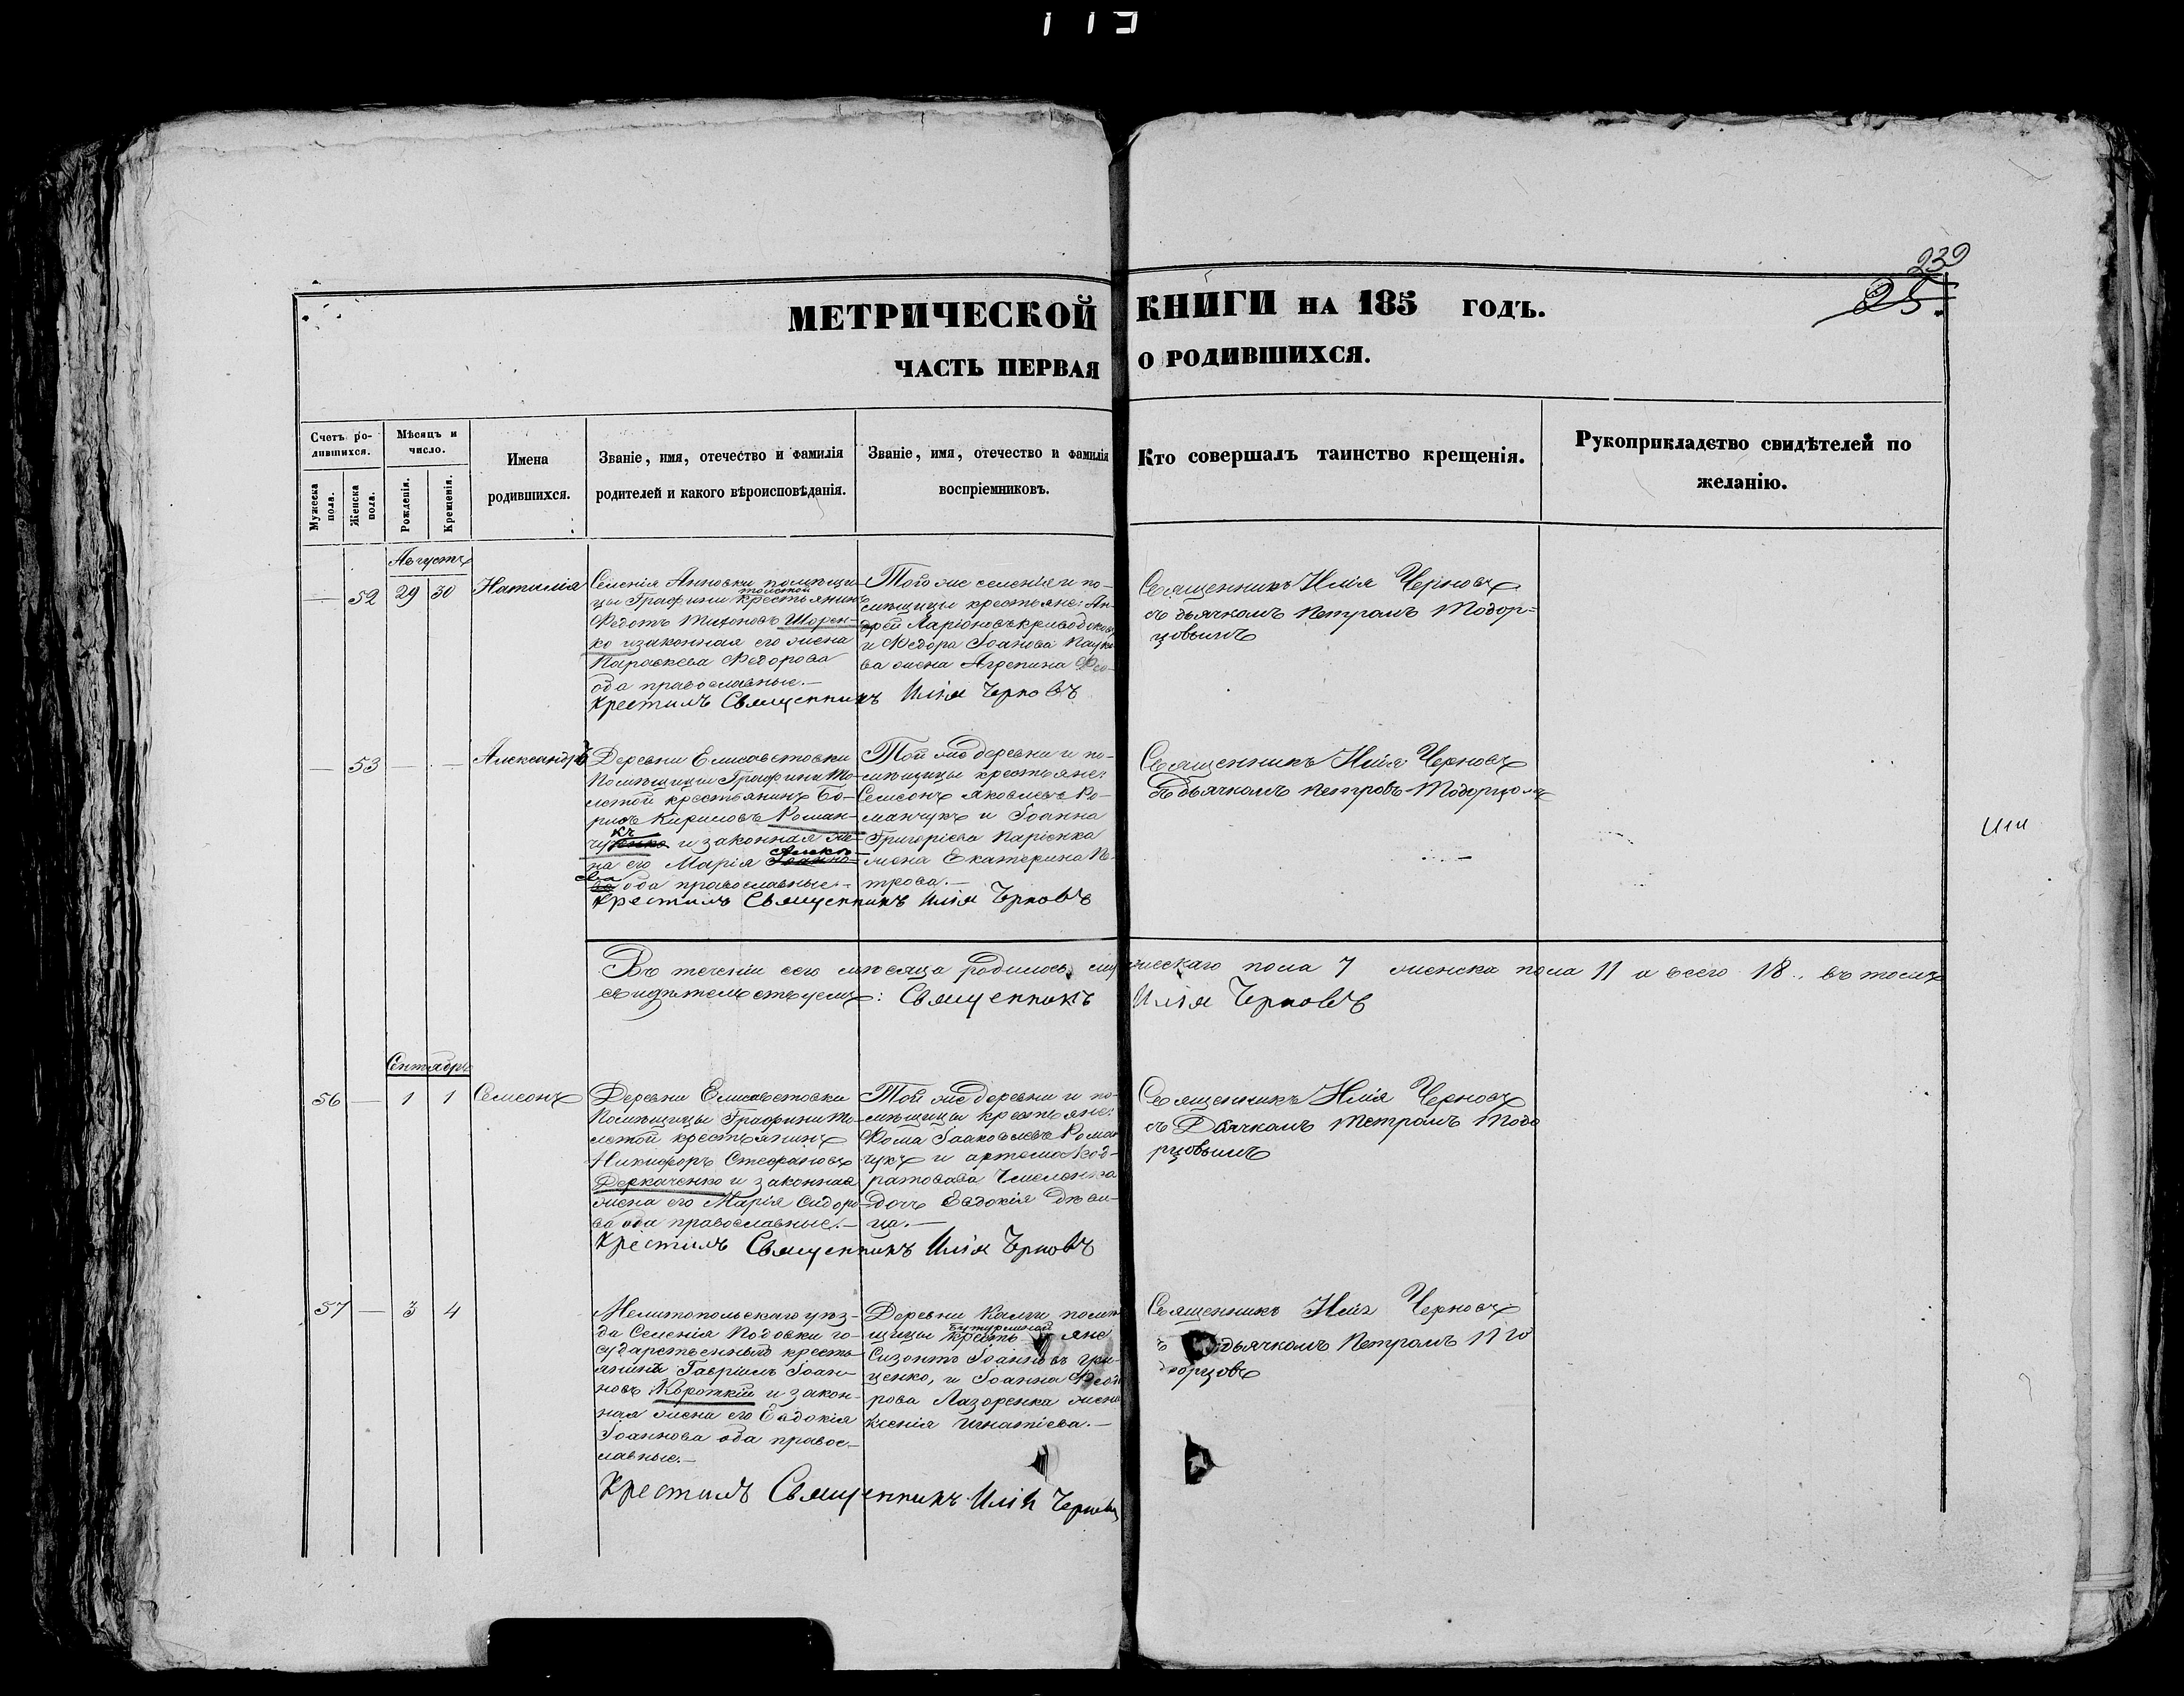 113
239
25.
МЕТРИЧЕСКОЙ КНИГИ НА 185 ГОДЪ.
ЧАСТЬ ПЕРВАЯ О РОДИВШИХСЯ.
Счетъ ро-
дившихся.
Мужеска
пола.
Женска
пола.
Мѣсяцъ и
число.
Рожденія.
Крещенія.
Имена
родившихся.
Званіе, имя, отечество и фамилія
родителей и какого вѣроисповѣданія.
Званіе, имя, отечество и фамилія
воспріемниковъ.
Кто совершалъ таинство крещенія.
Рукоприкладство свидѣтелей по
желанію.
Августъ
— 52 29 30 Наталія
Селенія Анновки помѣщи-
цы Графини толстой крестьянинъ
Федотъ Тихоновъ Шорен-
ко и законная его жена
Параскева Федорова
оба православные.—
Того же селенія и по-
мѣщицы крестьяне: Ан-
дрей Ларіоновъ
и Федора Іоанова
ва жена Агрепина
Крестилъ Священникъ Илія Черновъ
Священникъ Илія Черновъ
съ дьячкомъ Петромъ Тодор-
цовымъ
— 53 — — Александръ
Деревни Елисаветовки
Помѣщицы Графини То-
лстой крестьянинъ Бо-
рисъ Кириловъ Роман-
чукъ и законная же-
на его Марія Алекс-
ева оба православные.-
Той же деревни и по-
мѣщицы крестьяне:
Семеонъ Яковлевъ Ро-
манчукъ и Іоанна
Григоріева Паріенка
жена Екатерина Пе-
трова.—
Крестилъ Священникъ Илія Черновъ
Священникъ Илія Черновъ
съ дьячкомъ Петровъ Тодорцомъ
Въ теченіи сего мѣсяца родилось мужескаго пола 7 женска пола 11 а всего 18.. въ томъ
свидѣтельствуемъ: Священникъ Илія Черновъ
Сентябрь
56 — 1 1 Семеонъ
Деревни Елисаветовки
Помѣщицы Графини То-
лстой крестьянинъ
Никифоръ Стефановъ
Деркаченко и законная
жена его Марія Сидоро-
ва оба православные.—
Той же деревни и по-
мѣщицы крестьяне:
Фома Іаковлевъ Роман
чукъ и
дочь Евдокія дѣви-
ца.—
Крестилъ Священникъ Илія Черновъ
Священникъ Илія Черновъ
съ Дьячкомъ Петромъ Тодо
рцовымъ
57 — 3 4
Мелитопольскаго уѣз-
да Селенія Подовки го-
сударственный кресть
янинъ Гавріилъ Іоан-
новъ Короткій и закон-
ная жена его Евдокія
Іоаннова оба правос-
лавные.—
Деревни Калги помѣ
щицы бутурлиной кресть яне
Сизонтъ Іоанновъ Гри-
ценко, и Іоанна Федо
рова Лазоренка жена
Ксенія Игнатіева.—
Крестилъ Священникъ Илія Черновъ
Священникъ Илія Черновъ
дьячкомъ Петромъ То
дорцовъ